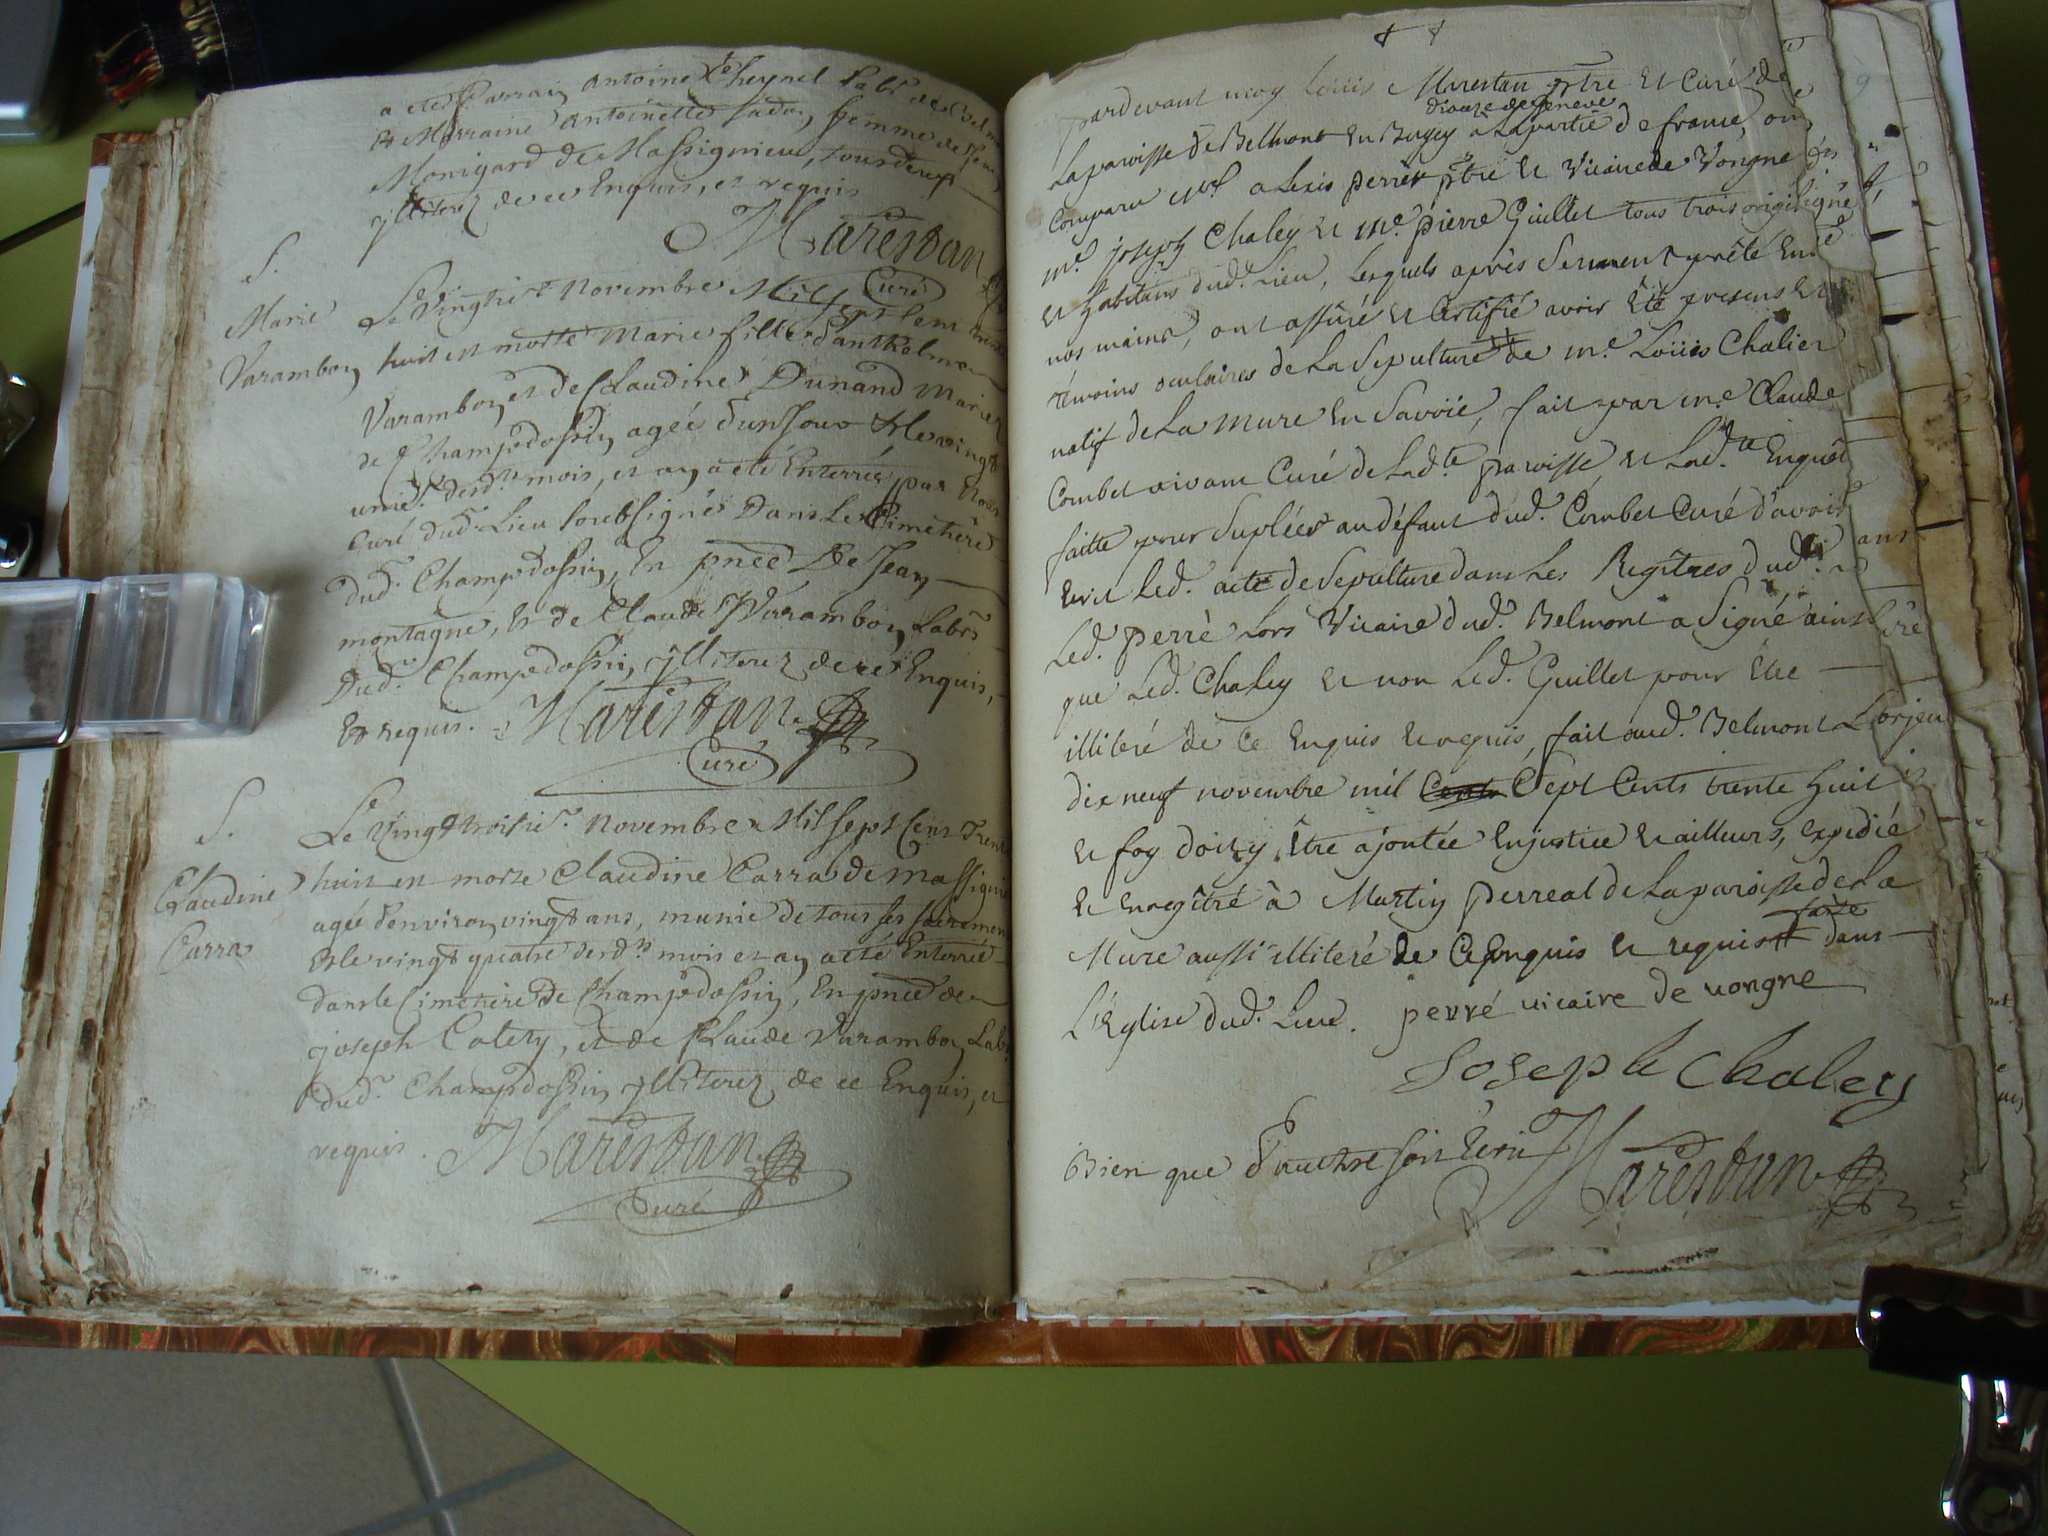 a eté Parrain antoine heynel Lab.r de Belm
Et Marraine antoinette fadon, femme de
Monigard de Massignieu, tous deux
yllitérez de ce Enquis, et requis
Marestan
Curé
S.
Marie
Varambon
Le Vingtie.e novembre Mil sept Cent trente
huit est morte Marie fille d'anthelme
Varambon, et de Claudine Dunand Mariez
de Champdossin agée d'un Jour & le vingt
unie.e desd.ts mois, et an, a eté Enterrée par Nous
Curé dud.t Lieu soubsigné Dans Le Cimetière
dud.t Champdossin, En pnce De Jean
montagne, Et de Claude Varambon Labrs
Dud.t Champdossin, yllitérez de ce Enquis,
Et requis. Marestan
Curé
S.
Claudine
Carra
Le Vingt troisie.e novembre Mil sept Cent Trente
huit est morte Claudine Carra de Massignieu
agée d'environ vingt ans, munie de tous ses sacremens
Et le vingt quatre desd.ts mois et an a eté Enterrée
dans le Cimetière De Champdossin, En pnce de
joseph Catery, et de Claude Varambon Labrs
dud.t Champdossin yllitérez de ce Enquis, et
requis. Marestan
Curé
pardevant moy Louis Marestan ptre et Curé de
diocèse de Geneve
La paroisse de Belmont en Bugey à La partie de france, ont
Comparu m.e alexis perré ptre et Vicaire de Vongne
m.e joseph Chaley et m.e pierre Guillet tous trois
et habitans dud. Lieu, Lesquels après serment prêté en
nos mains, ont assuré et Certifié avoir été presens et
témoins oculaires de La sepulture de m.e Loüis Chalier
natif de La Mure en Savoie, fait par m.e Claude
Combet vivant Curé de Lad.te paroisse, et Lad.te Enquête
faitte pour supléer au défaut dud. Combet Curé d'avoir
Ecrit Led. acte de sepulture dans Les Regîtres dud.
Led. perré Lors Vicaire dud. Belmont a signé ainsi
que Led. Chaley et non Led. Guillet pour être
illiteré de ce Enquis et requis, fait aud. Belmont
dix neuf novembre mil Cents Sept Cents trente huit
et foy doivy être ajoutée en justice et ailleurs, expedié
et enregîtré à Martin perreal de La paroisse de La
Mure aussi illiteré de ce enquis et requis faite dans
L'Eglise dud. Lieu. perré vicaire de vongne
Joseph Chaley
Bien que d'autre soit écrit Marestan